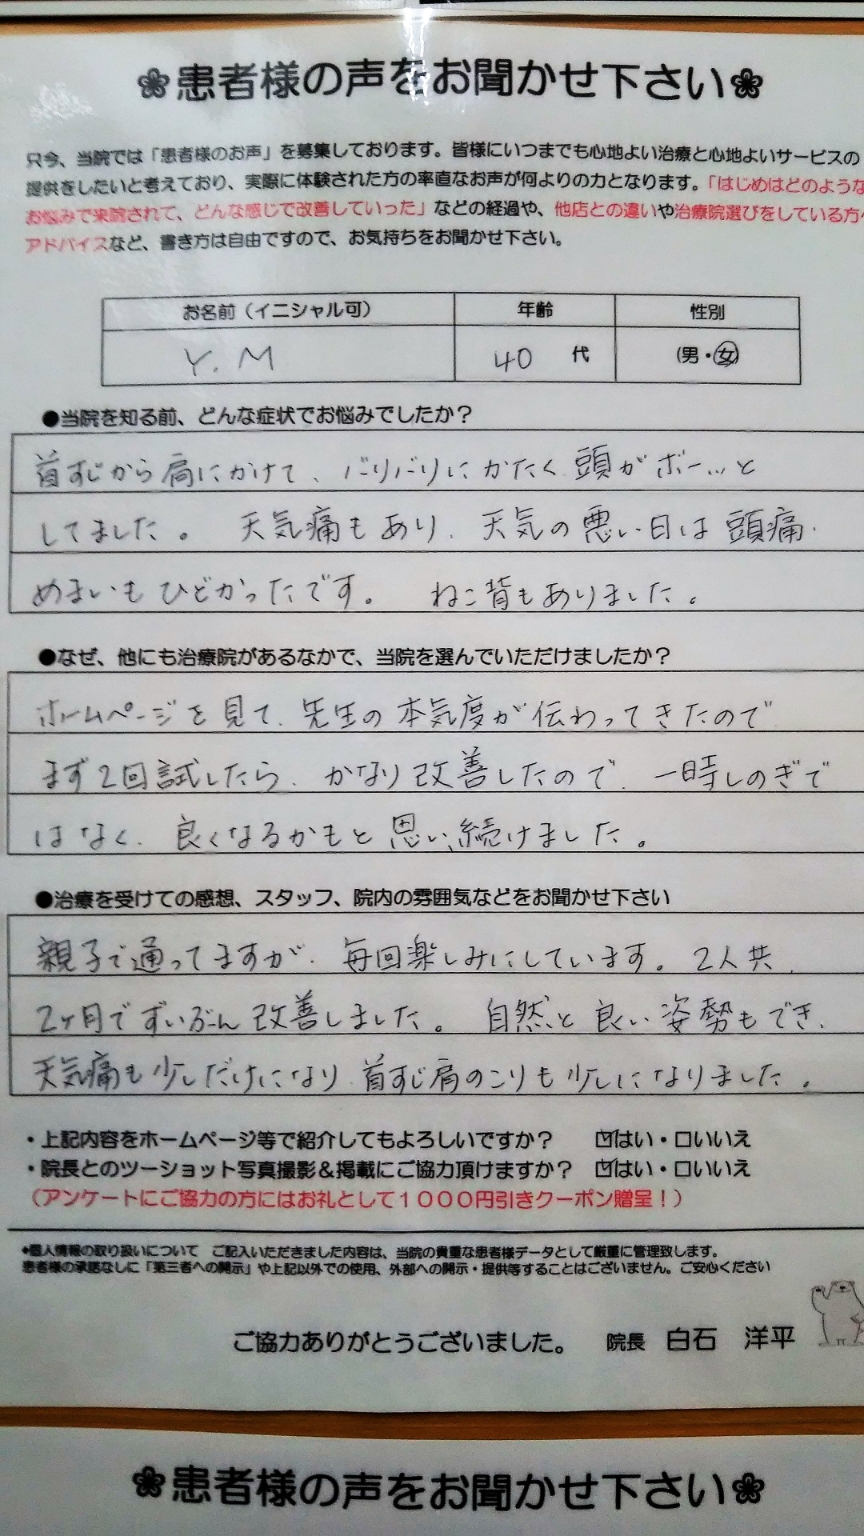 ❀患者様の声をお聞かせ下さい❀
只今、当院では「患者様のお声」を募集しております。皆様にいつまでも心地よい治療と心地よいサービスの
提供をしたいと考えており、実際に体験された方の率直なお声が何よりの力となります。「はじめはどのような
お悩みで来院されて、どんな感じで改善していった」などの経過や、他店との違いや治療院選びをしている方へ
アドバイスなど、書き方は自由ですので、お気持ちをお聞かせ下さい。
お名前（イニシャル可） 年齢 性別
Y.M 40 代 (男・女)
●当院を知る前、どんな症状でお悩みでしたか？
首すじから肩にかけて、バリバリにかたく頭がボー…と
してました。 天気痛もあり、天気の悪い日は頭痛、
めまいもひどかったです。 ねこ背もありました。
●なぜ、他にも治療院があるなかで、当院を選んでいただけましたか？
ホームページを見て、先生の本気度が伝わってきたので
まず2回試したら、かなり改善したので、一時しのぎで
はなく、良くなるかもと思い、続けました。
●治療を受けての感想、スタッフ、院内の雰囲気などをお聞かせ下さい
親子で通ってますが、毎回楽しみにしています。2人共、
2ヶ月でずいぶん改善しました。 自然と良い姿勢もでき、
天気痛も少しだけになり、首すじ肩のこりも少しになりました。
・上記内容をホームページ等で紹介してもよろしいですか？ ☑はい・□いいえ
・院長とのツーショット写真撮影＆掲載にご協力頂けますか？ ☑はい・□いいえ
（アンケートにご協力の方にはお礼として１０００円引きクーポン贈呈！）
◆個人情報の取り扱いについて ご記入いただきました内容は、当院の貴重な患者様データとして厳重に管理致します。
患者様の承諾なしに「第三者への開示」や上記以外での使用、外部への開示・提供等することはございません。ご安心ください
ご協力ありがとうございました。 院長 白石 洋平
❀患者様の声をお聞かせ下さい❀